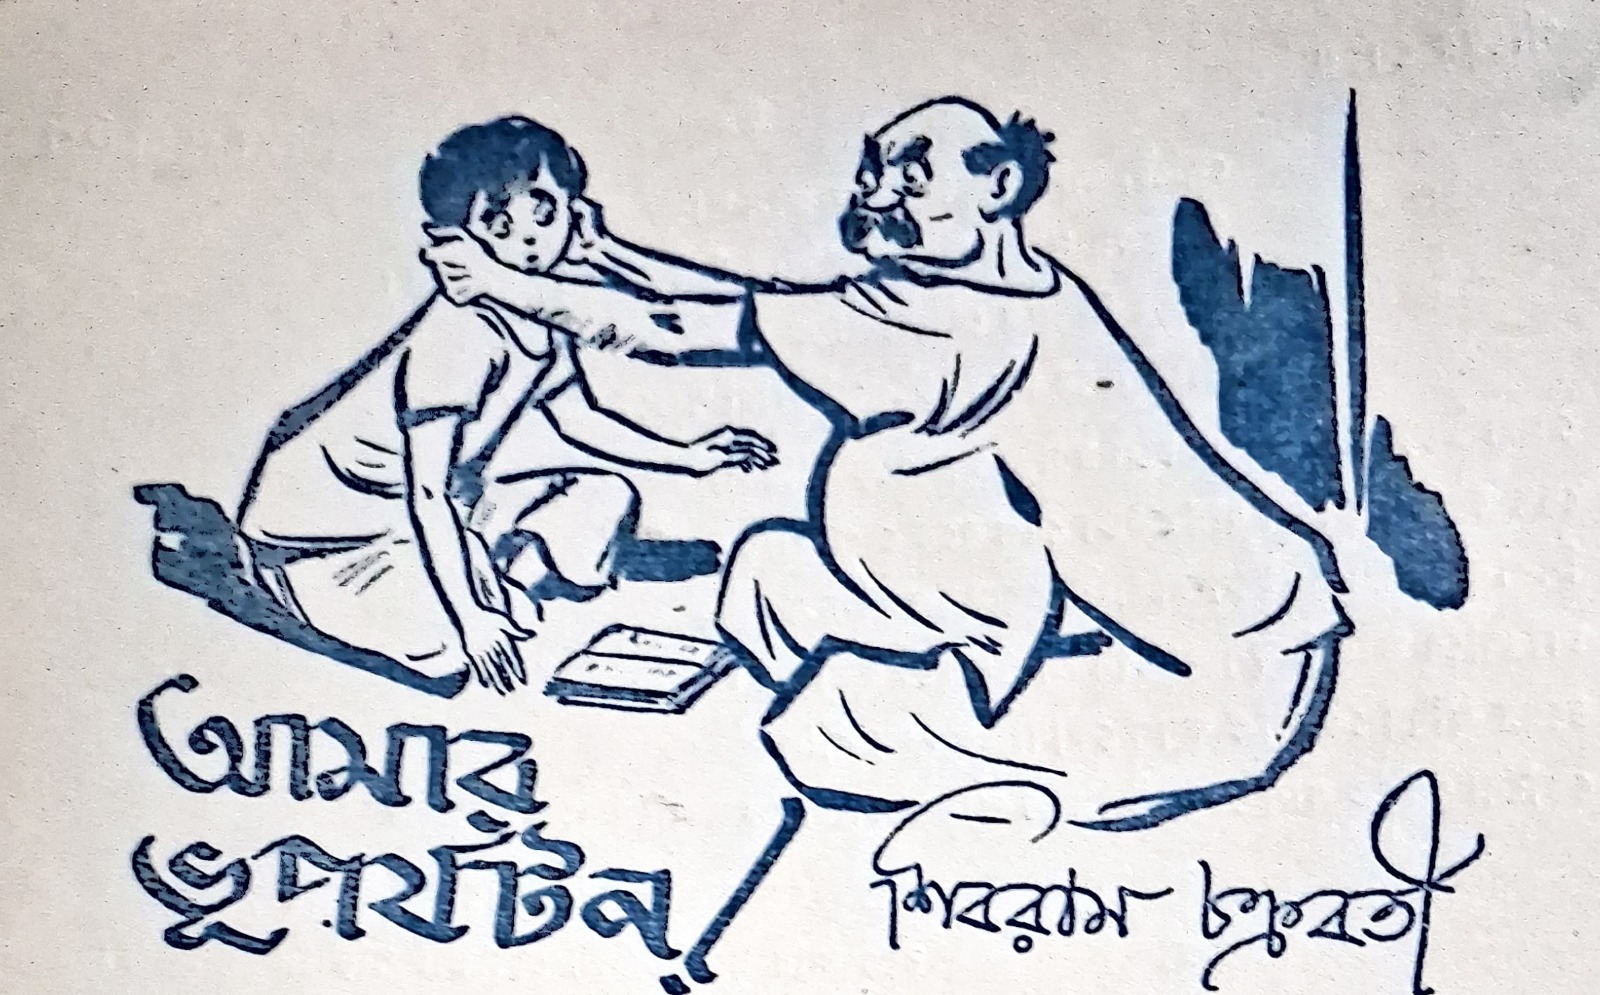 আমার
ভূপর্যটন!
শিবরাম চক্রবর্তী